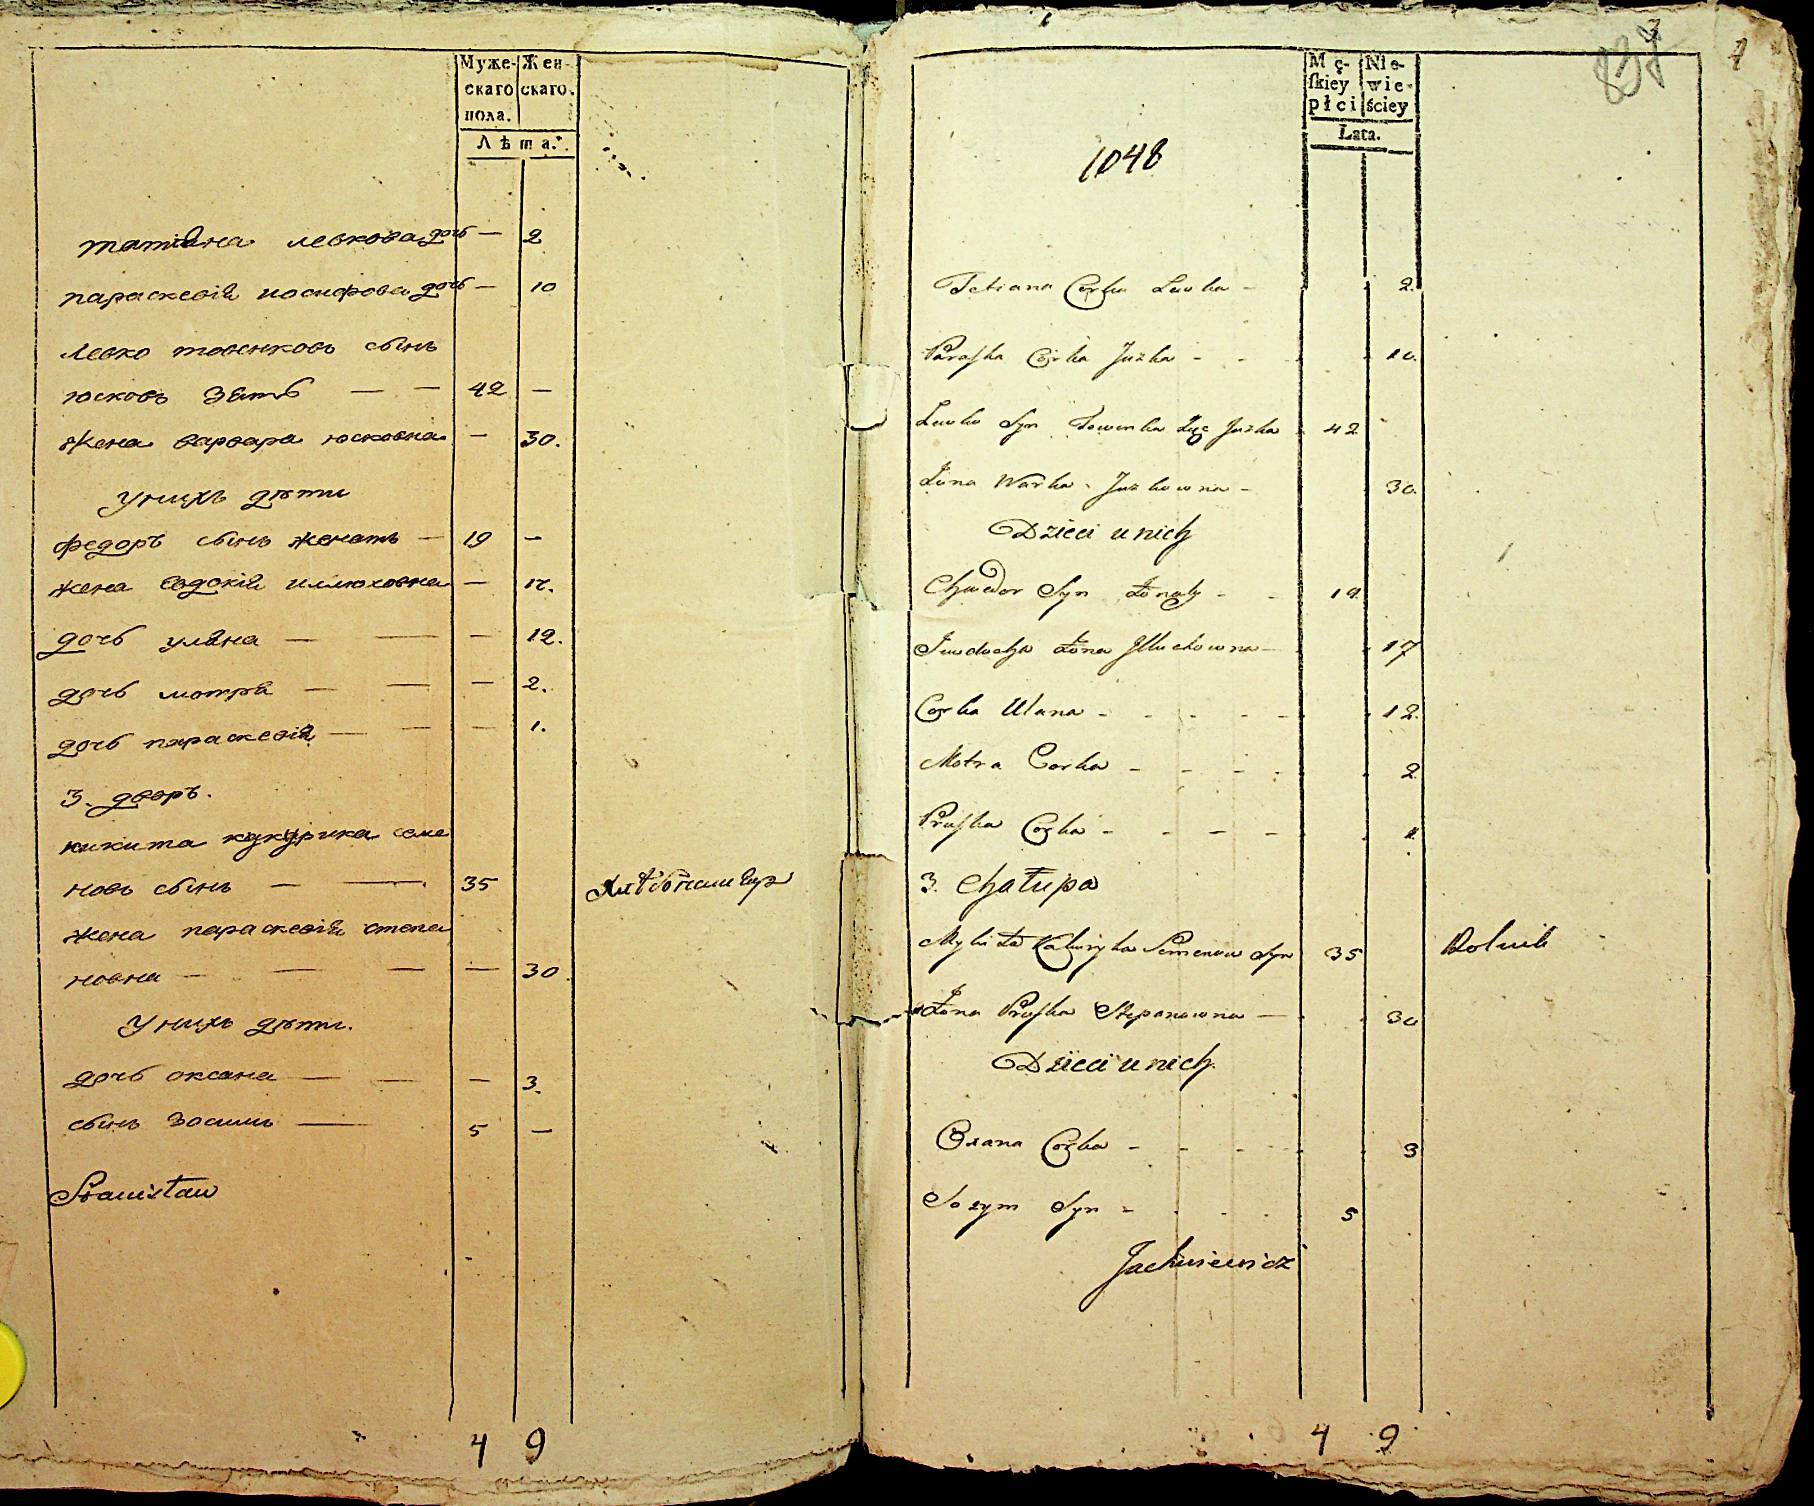 Муже- Жен-
скаго скаго.
пола.
Лѣта.
татіана левкова дочь — 2
параскевія иосифова дочь — 10
левко товенковъ сынъ
юсковъ зять — — 42 —
жена варвара юсковна — 30.
У нихъ дѣти
федоръ сынъ женатъ — 19 —
жена евдокія иллюховна — 17.
дочь уляна — — — 12.
дочь мотря — — — 2.
дочь параскевія — — — 1.
3. дворъ.
никита кукурика семе
новъ сынъ — — 35
жена параскевія степа
новна — — — — 30
У нихъ дѣти.
дочь оксана — — — 3.
сынъ зосимъ — 5 —
Stanisław
4 9
837
1048
Mę- Nie-
ſkiey wie-
płci ściey
Lata.
Tetiana Corka Lewka - 2.
Paraſka Corka Juzka - - 10.
Lewko Syn Towenka Zięć Juzka 42
Żona Warka Juzkowna - 30.
Dzieci u nich
Chwedor Syn Żonaty - - 19
Jewdocha Żona Jlluchowna - 17
Corka Ulana - - - - - 12.
Motra Corka - - - - 2
Praſka Corka - - - - 1
3. Chałupa
Mykita Kukuryka Semenow Syn 35 Rolnik
Żona Praſka Stepanowna — 30
Dzieci u nich.
Oxana Corka - - - - 3
Sozym Syn - - - - 5
Jachimowicz
4 9